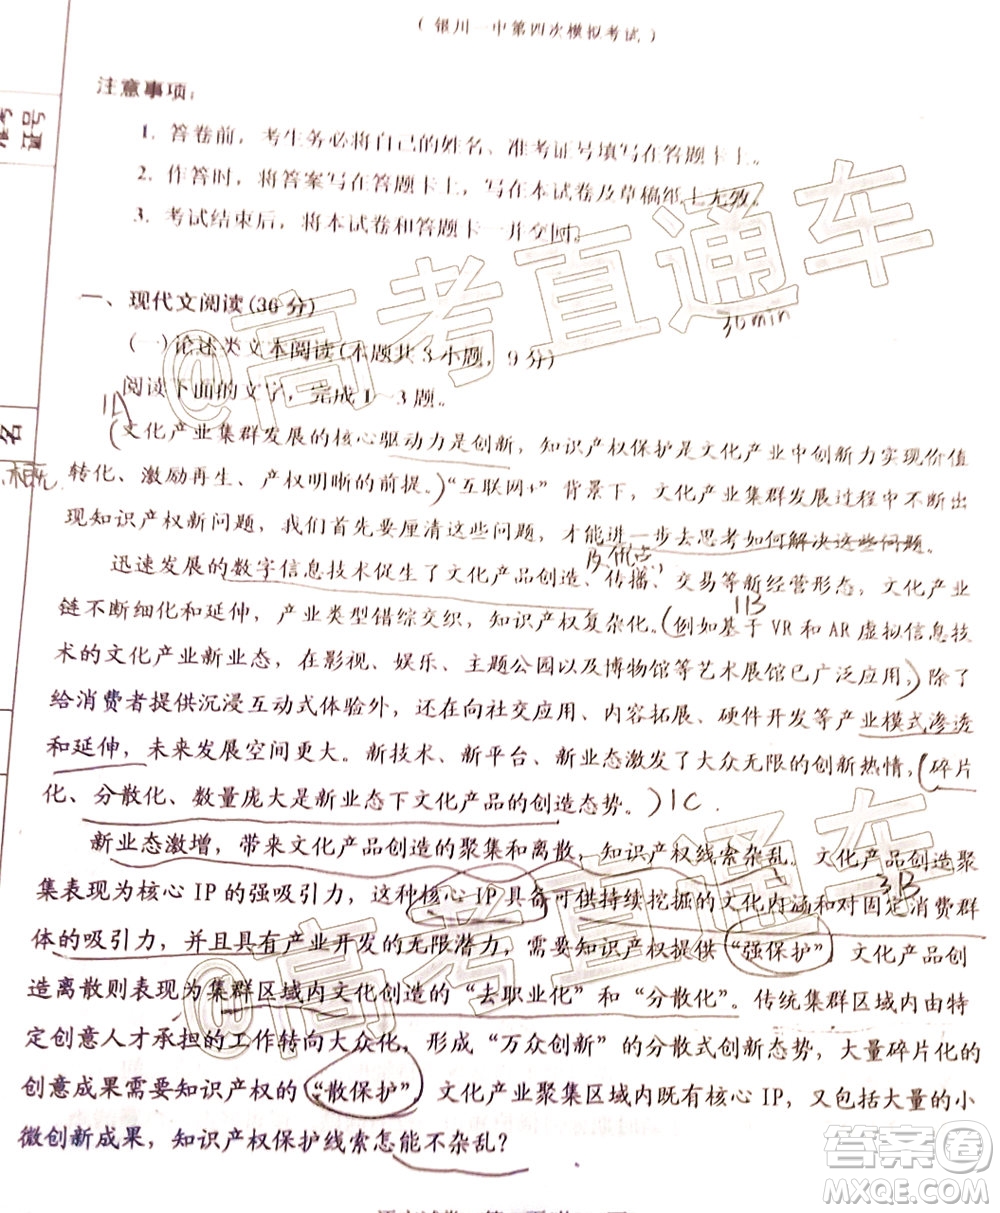 （银川一中第四次模拟考试）
注意事项：
1. 答卷前，考生务必将自己的姓名、准考证号填写在答题卡上。
2. 作答时，将答案写在答题卡上，写在本试卷及草稿纸上无效。
3. 考试结束后，将本试卷和答题卡一并交回。
证号
名
@高考直通车
一、现代文阅读(36分)
30min
(一)论述类文本阅读(本题共3小题，9分)
阅读下面的文字，完成1～3题。
1A
(文化产业集群发展的核心驱动力是创新，知识产权保护是文化产业中创新力实现价值
转化、激励再生、产权明晰的前提。)“互联网+”背景下，文化产业集群发展过程中不断出
现知识产权新问题，我们首先要厘清这些问题，才能进一步去思考如何解决这些问题。
迅速发展的数字信息技术促生了文化产品创造、传播、交易等新经营形态，文化产业
1B
链不断细化和延伸，产业类型错综交织，知识产权复杂化。(例如基于 VR 和 AR 虚拟信息技
术的文化产业新业态，在影视、娱乐、主题公园以及博物馆等艺术展馆已广泛应用，)除了
给消费者提供沉浸互动式体验外，还在向社交应用、内容拓展、硬件开发等产业模式渗透
和延伸，未来发展空间更大。新技术、新平台、新业态激发了大众无限的创新热情，(碎片
化、分散化、数量庞大是新业态下文化产品的创造态势。)1C
新业态激增，带来文化产品创造的聚集和离散，知识产权线索杂乱。文化产品创造聚
3B
集表现为核心 IP 的强吸引力，这种核心 IP 具备可供持续挖掘的文化内涵和对固定消费群
体的吸引力，并且具有产业开发的无限潜力，需要知识产权提供“强保护”，文化产品创
造离散则表现为集群区域内文化创造的“去职业化”和“分散化”。传统集群区域内由特
定创意人才承担的工作转向大众化，形成“万众创新”的分散式创新态势，大量碎片化的
创意成果需要知识产权的“散保护”，文化产业聚集区域内既有核心 IP，又包括大量的小
微创新成果，知识产权保护线索怎能不杂乱？
@高考直通车
答案圈
MXQE.COM